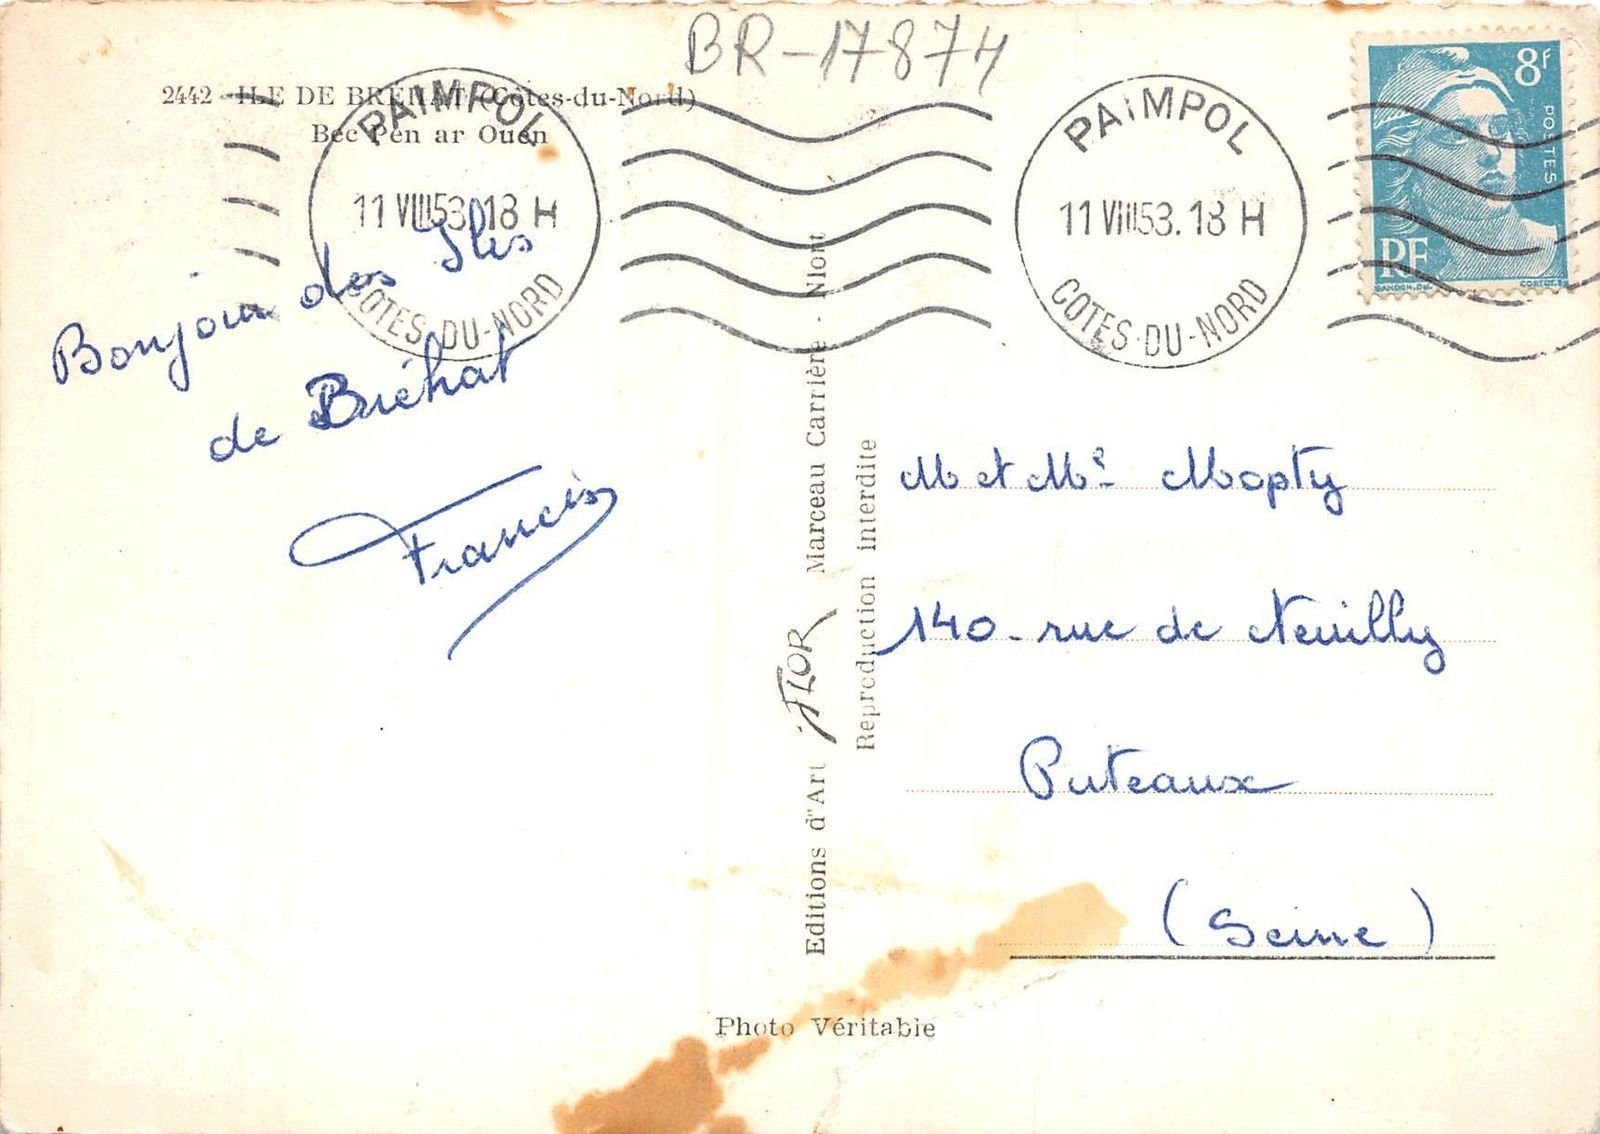 BR-17874
2442 - ILE DE BREHAT (Côtes-du-Nord)
Bec Pen ar Ouen
PAIMPOL
11 VIII53.18 H
COTES-DU-NORD
PAIMPOL
11 VIII53.18 H
COTES-DU-NORD
8F
POSTES
RF
GANDON.DEL.
CORTOT.
Bonjour des Iles
de Bréhat
Francis
Editions d'Art JFLOR Marceau Carrière - Niort
Reproduction interdite
M et Me Mopty
140 - rue de Neuilly
Puteaux
(Seine)
Photo Véritable